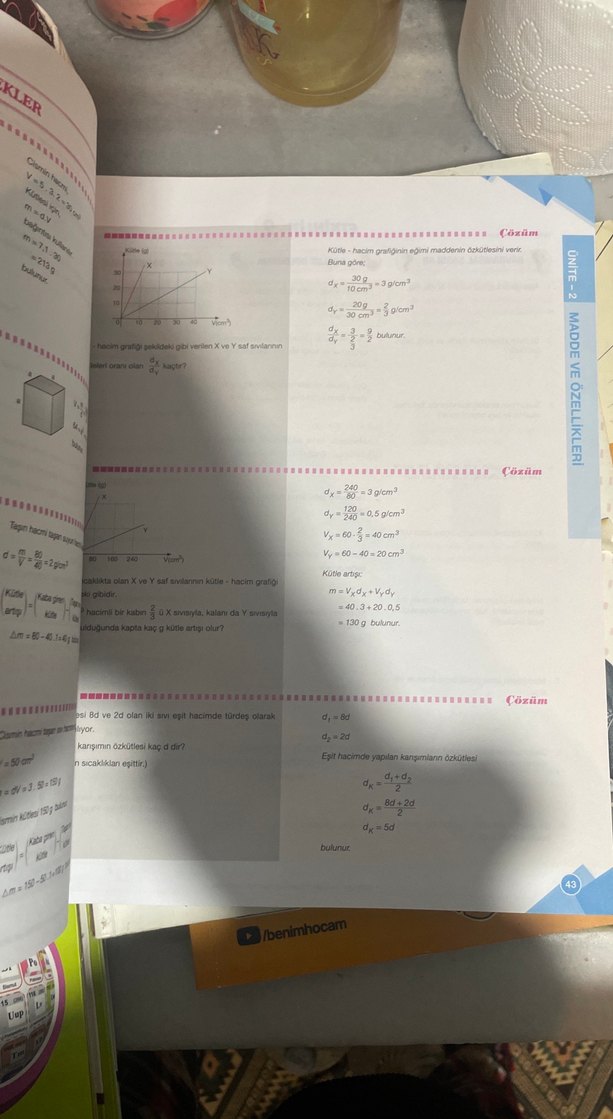 EKLER
Cismin hacmi,
V = 5 . 3 . 2 = 30 cm³
Kütlesi için,
m = d.V
bağıntısı kullanılır.
m = 7,1 . 30
= 213 g
bulunur.
a
a
a
Taşın hacmi taşan suyun
d = m/V = 80/40 = 2 g/cm³
(Kütle artışı) = (Kaba giren kütle) -
Δm = 80 - 40 . 1 = 40 g
Cismin hacmi taşan
V = 50 cm³
= dV = 3 . 50 = 150 g
kütlesi 150 g bulunur
= (Kaba giren kütle) -
Δm = 150 - 50 . 1 = 100 g
Çözüm
Kütle (g)
X
Y
30
20
10
0 10 20 30 40 V(cm³)
- hacim grafiği şekildeki gibi verilen X ve Y saf sıvılarının
oranı olan dX/dY kaçtır?
Kütle - hacim grafiğinin eğimi maddenin özkütlesini verir.
Buna göre;
dX = 30 g/10 cm³ = 3 g/cm³
dY = 20g/30 cm³ = 2/3 g/cm³
dX/dY = 3/(2/3) = 9/2 bulunur.
ÜNİTE – 2 MADDE VE ÖZELLİKLERİ
Çözüm
(g)
X
Y
80 160 240 V(cm³)
olan X ve Y saf sıvılarının kütle - hacim grafiği
gibidir.
hacimli bir kabın 2/3 ü X sıvısıyla, kalanı da Y sıvısıyla
kapta kaç g kütle artışı olur?
dX = 240/80 = 3 g/cm³
dY = 120/240 = 0,5 g/cm³
VX = 60 · 2/3 = 40 cm³
VY = 60 – 40 = 20 cm³
Kütle artışı:
m = VXdX + VYdY
= 40 . 3 + 20 . 0,5
= 130 g bulunur.
Çözüm
8d ve 2d olan iki sıvı eşit hacimde türdeş olarak
karışımın özkütlesi kaç d dir?
sıcaklıkları eşittir.)
d₁ = 8d
d₂ = 2d
Eşit hacimde yapılan karışımların özkütlesi
dK = (d₁ + d₂)/2
dK = (8d + 2d)/2
dK = 5d
bulunur.
43
/benimhocam
Pu
15
Uup
Lv
Tm